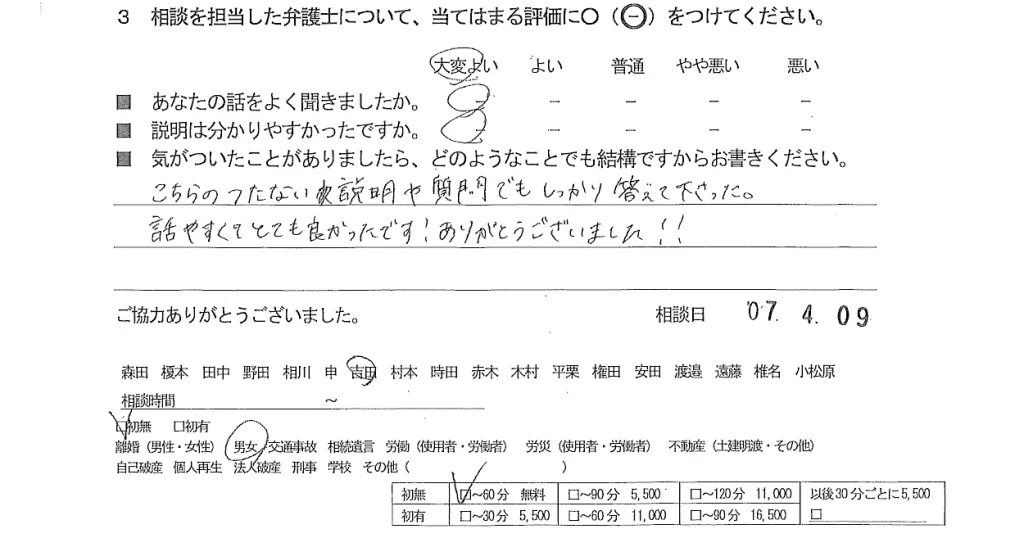 3 相談を担当した弁護士について、当てはまる評価に〇（㊀）をつけてください。
大変よい よい 普通 やや悪い 悪い
■ あなたの話をよく聞きましたか。 － － － － －
■ 説明は分かりやすかったですか。 － － － － －
■ 気がついたことがありましたら、どのようなことでも結構ですからお書きください。
こちらのつたない説明や質問でもしっかり答えて下さった。
話やすくてとても良かったです！ありがとうございました！！
ご協力ありがとうございました。 相談日 '07. 4. 09
森田 榎本 田中 野田 相川 申 吉田 村本 時田 赤木 木村 平栗 権田 安田 渡邉 遠藤 椎名 小松原
相談時間 ～
□初無 □初有
離婚（男性・女性） 男女 交通事故 相続遺言 労働（使用者・労働者） 労災（使用者・労働者） 不動産（土建明渡・その他）
自己破産 個人再生 法人破産 刑事 学校 その他（ ）
初無 □～60分 無料 □～90分 5,500 □～120分 11,000 以後30分ごとに5,500
初有 □～30分 5,500 □～60分 11,000 □～90分 16,500 □